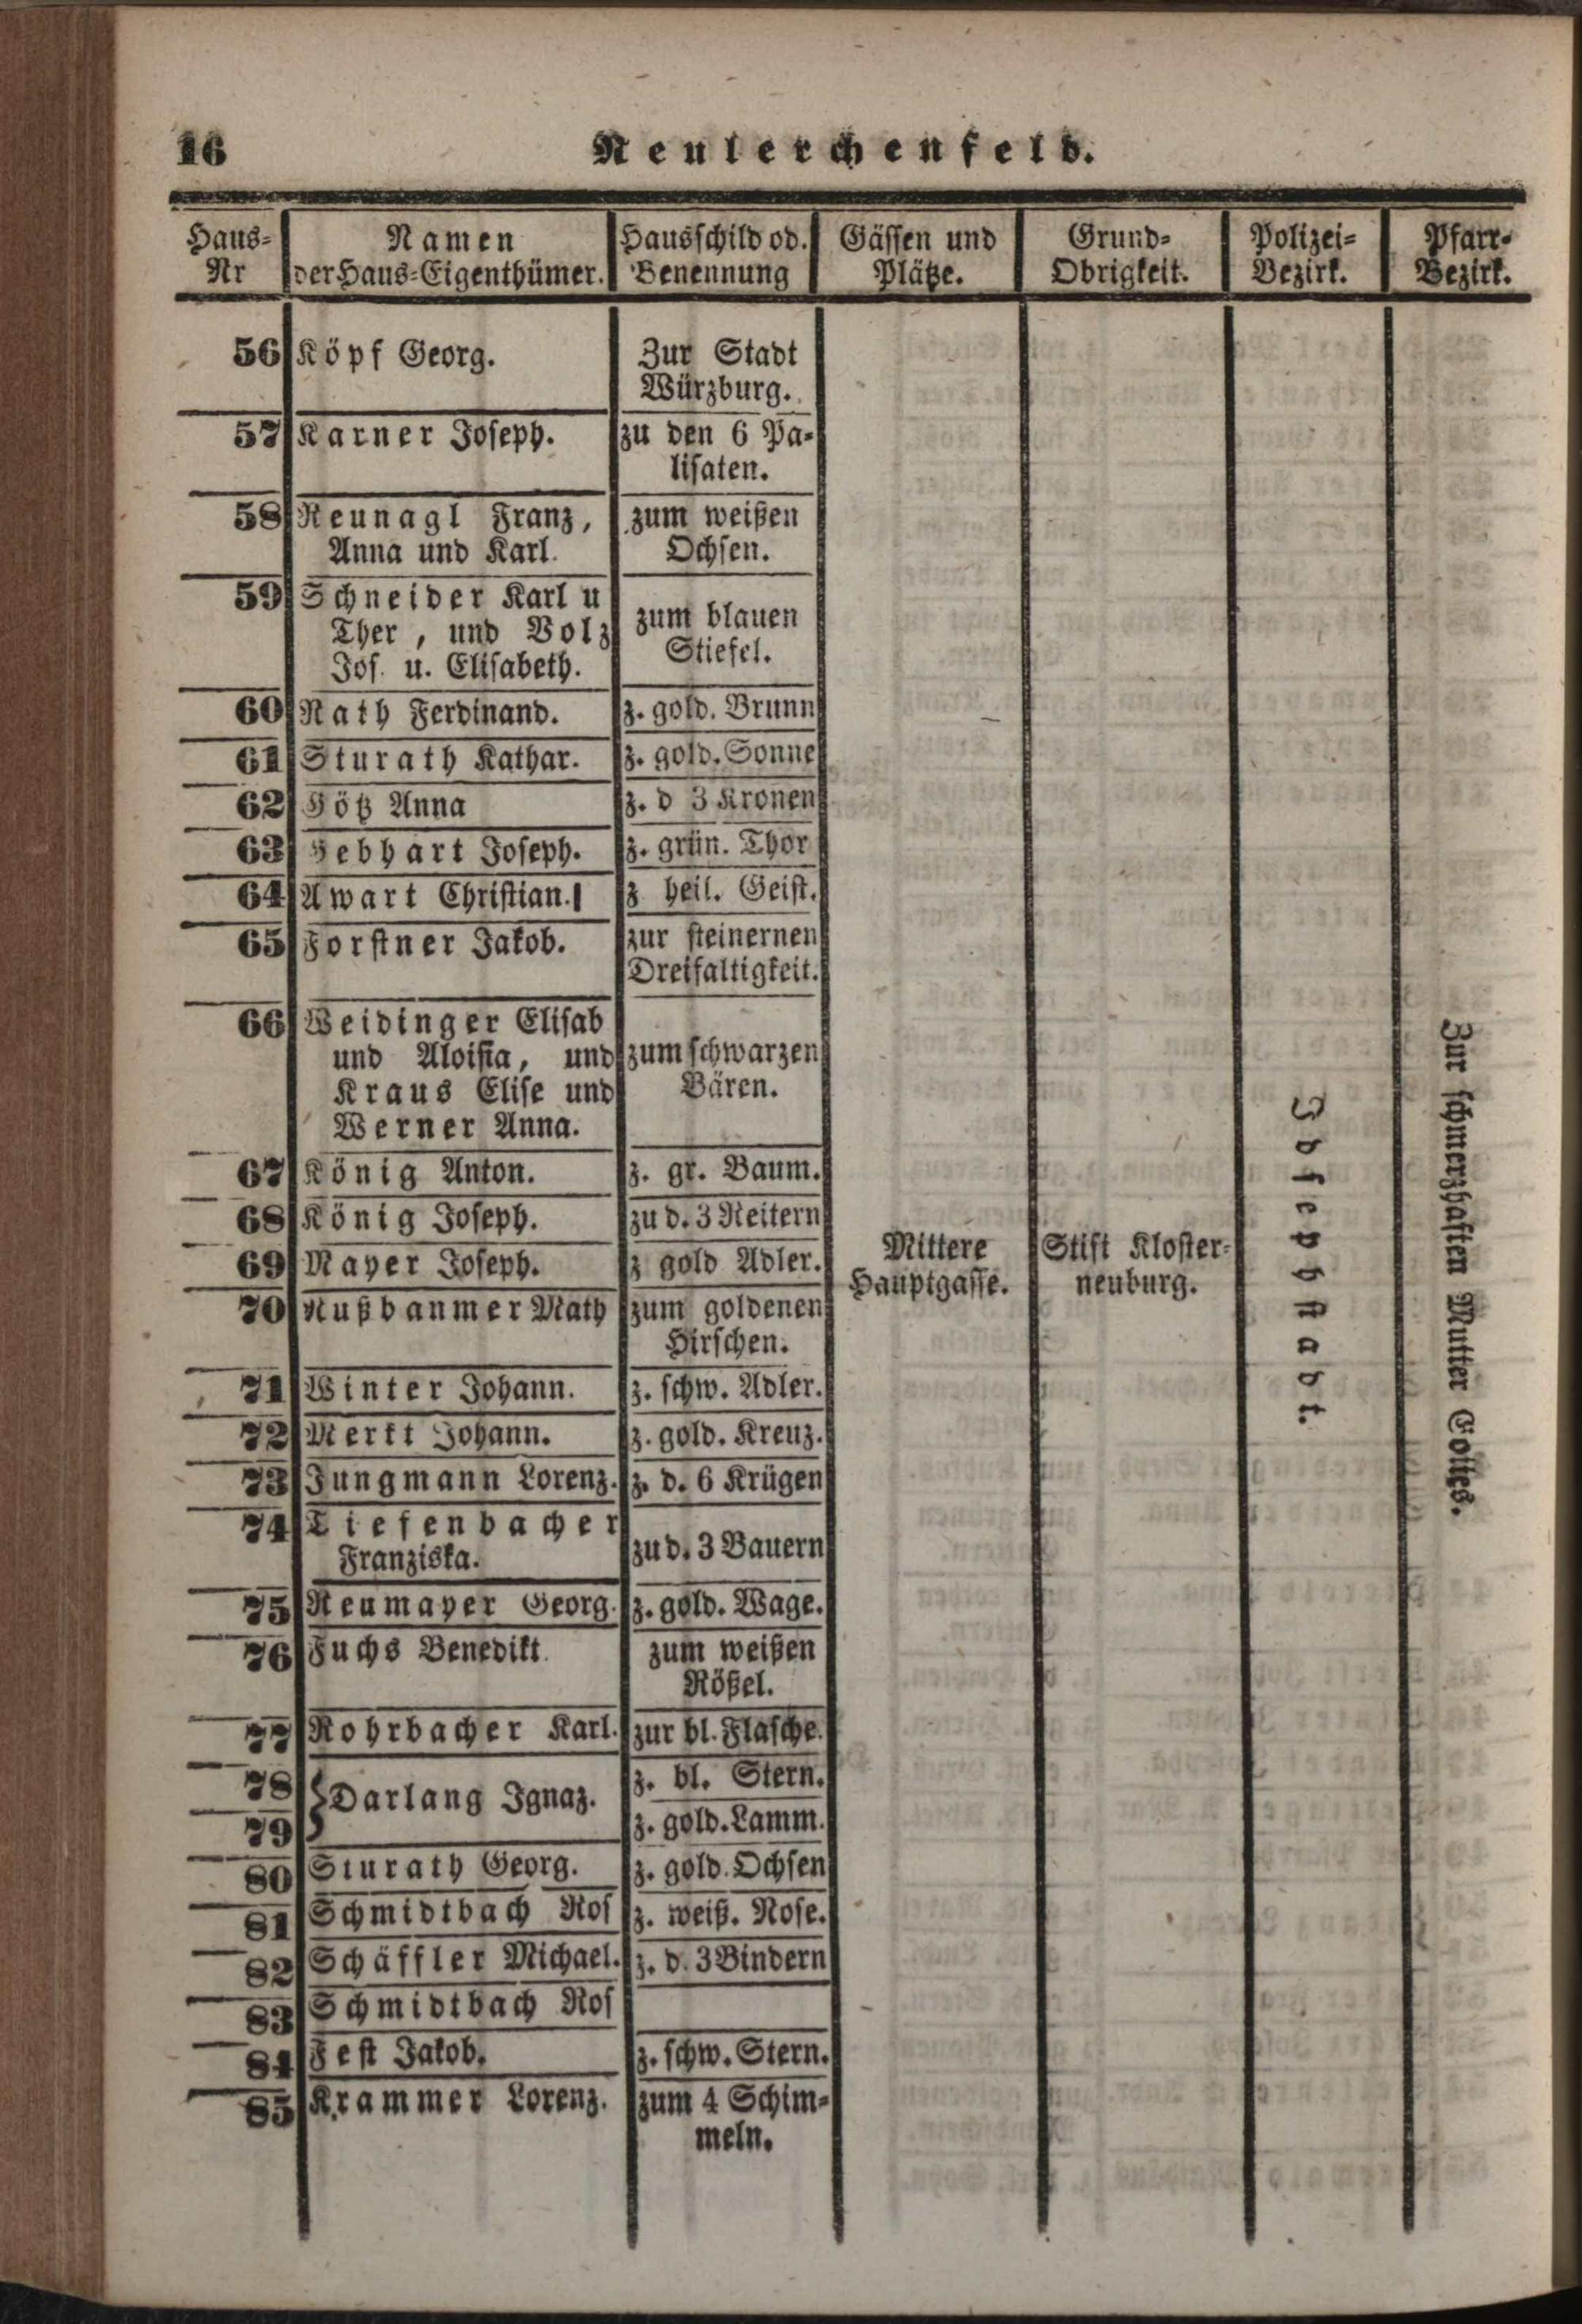 16
Neulerchenfeld.
Haus-
Nr
Namen
der Haus-Eigenthümer.
Hausschild od.
Benennung
Gässen und
Plätze.
Grund-
Obrigkeit.
Polizei-
Bezirk.
Pfarr-
Bezirk.
56 Köpf Georg. Zur Stadt
Würzburg.
57 Karner Joseph. zu den 6 Pa-
lisaten.
58 Neunagl Franz, zum weißen
Anna und Karl. Ochsen.
59 Schneider Karl u
Ther, und Volz zum blauen
Jos. u. Elisabeth. Stiefel.
60 Rath Ferdinand. z. gold. Brunn
61 Sturath Kathar. z. gold. Sonne
62 Götz Anna z. d 3 Kronen
63 Gebhart Joseph. z. grün. Thor
64 Awart Christian. z heil. Geist.
65 Forstner Jakob. zur steinernen
Dreifaltigkeit.
66 Weidinger Elisab
und Aloisia, und zum schwarzen
Kraus Elise und Bären.
Werner Anna.
67 König Anton. z. gr. Baum.
68 König Joseph. zu d. 3 Reitern
69 Mayer Joseph. z gold Adler.
70 Nußbaumer Math zum goldenen
Hirschen.
71 Winter Johann. z. schw. Adler.
72 Merkt Johann. z. gold. Kreuz.
73 Jungmann Lorenz. z. d. 6 Krügen
74 Tiefenbacher
Franziska. zu d. 3 Bauern
75 Neumayer Georg. z. gold. Wage.
76 Fuchs Benedikt. zum weißen
Rößel.
77 Rohrbacher Karl. zur bl. Flasche.
78 Darlang Ignaz. z. bl. Stern.
79 z. gold. Lamm.
80 Sturath Georg. z. gold. Ochsen
81 Schmidtbach Ros z. weiß. Rose.
82 Schäffler Michael. z. d. 3 Bindern
83 Schmidtbach Ros
84 Fest Jakob. z. schw. Stern.
85 Krammer Lorenz. zum 4 Schim-
meln.
Mittere
Hauptgasse.
Stift Kloster-
neuburg.
Josephstadt.
Zur schmerzhaften Mutter Gottes.